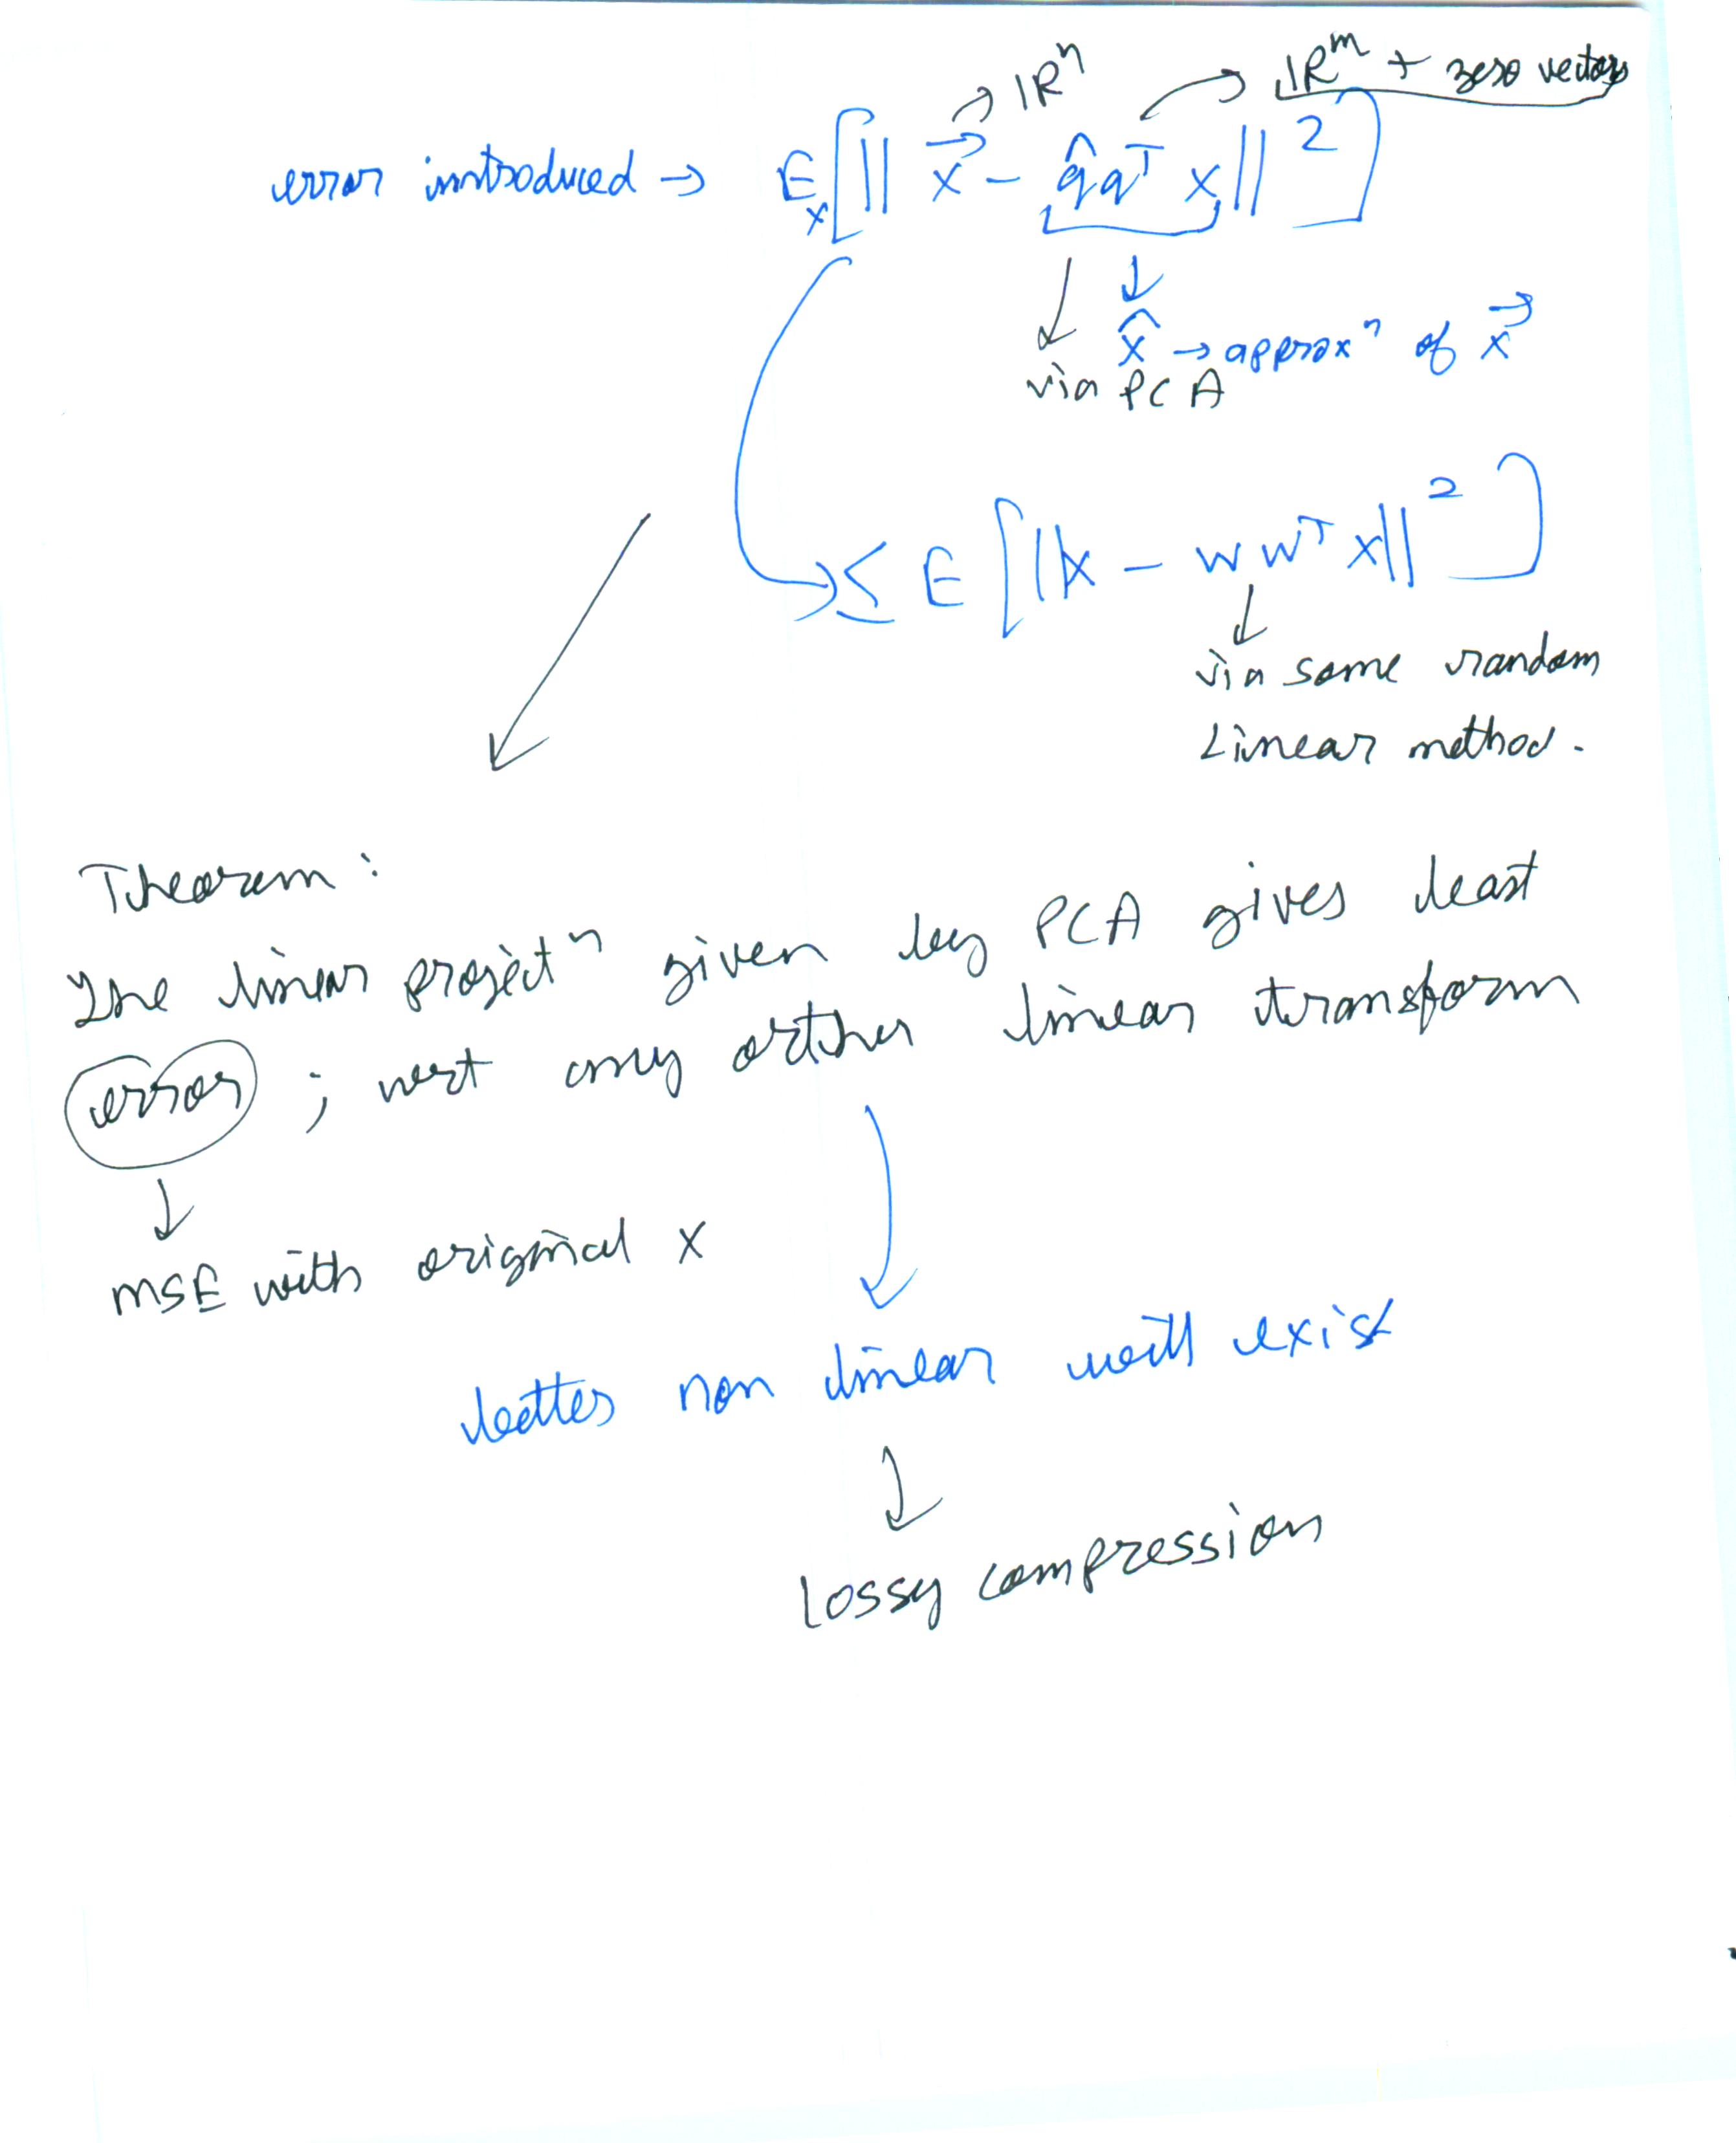 → IRⁿ → IRᵐ + zero vectors
error introduced → E_x [ || x⃗ - q̂qᵀ x ||² ]
x̂ → approxⁿ of x⃗
via PCA
→ ≤ E [ || x - w wᵀ x || ² ]
via some random
Linear method.
Theorem:
The linear projectⁿ given by PCA gives least
error ; wrt any other linear transform
MSE with original x
better non linear will exist
Lossy compression